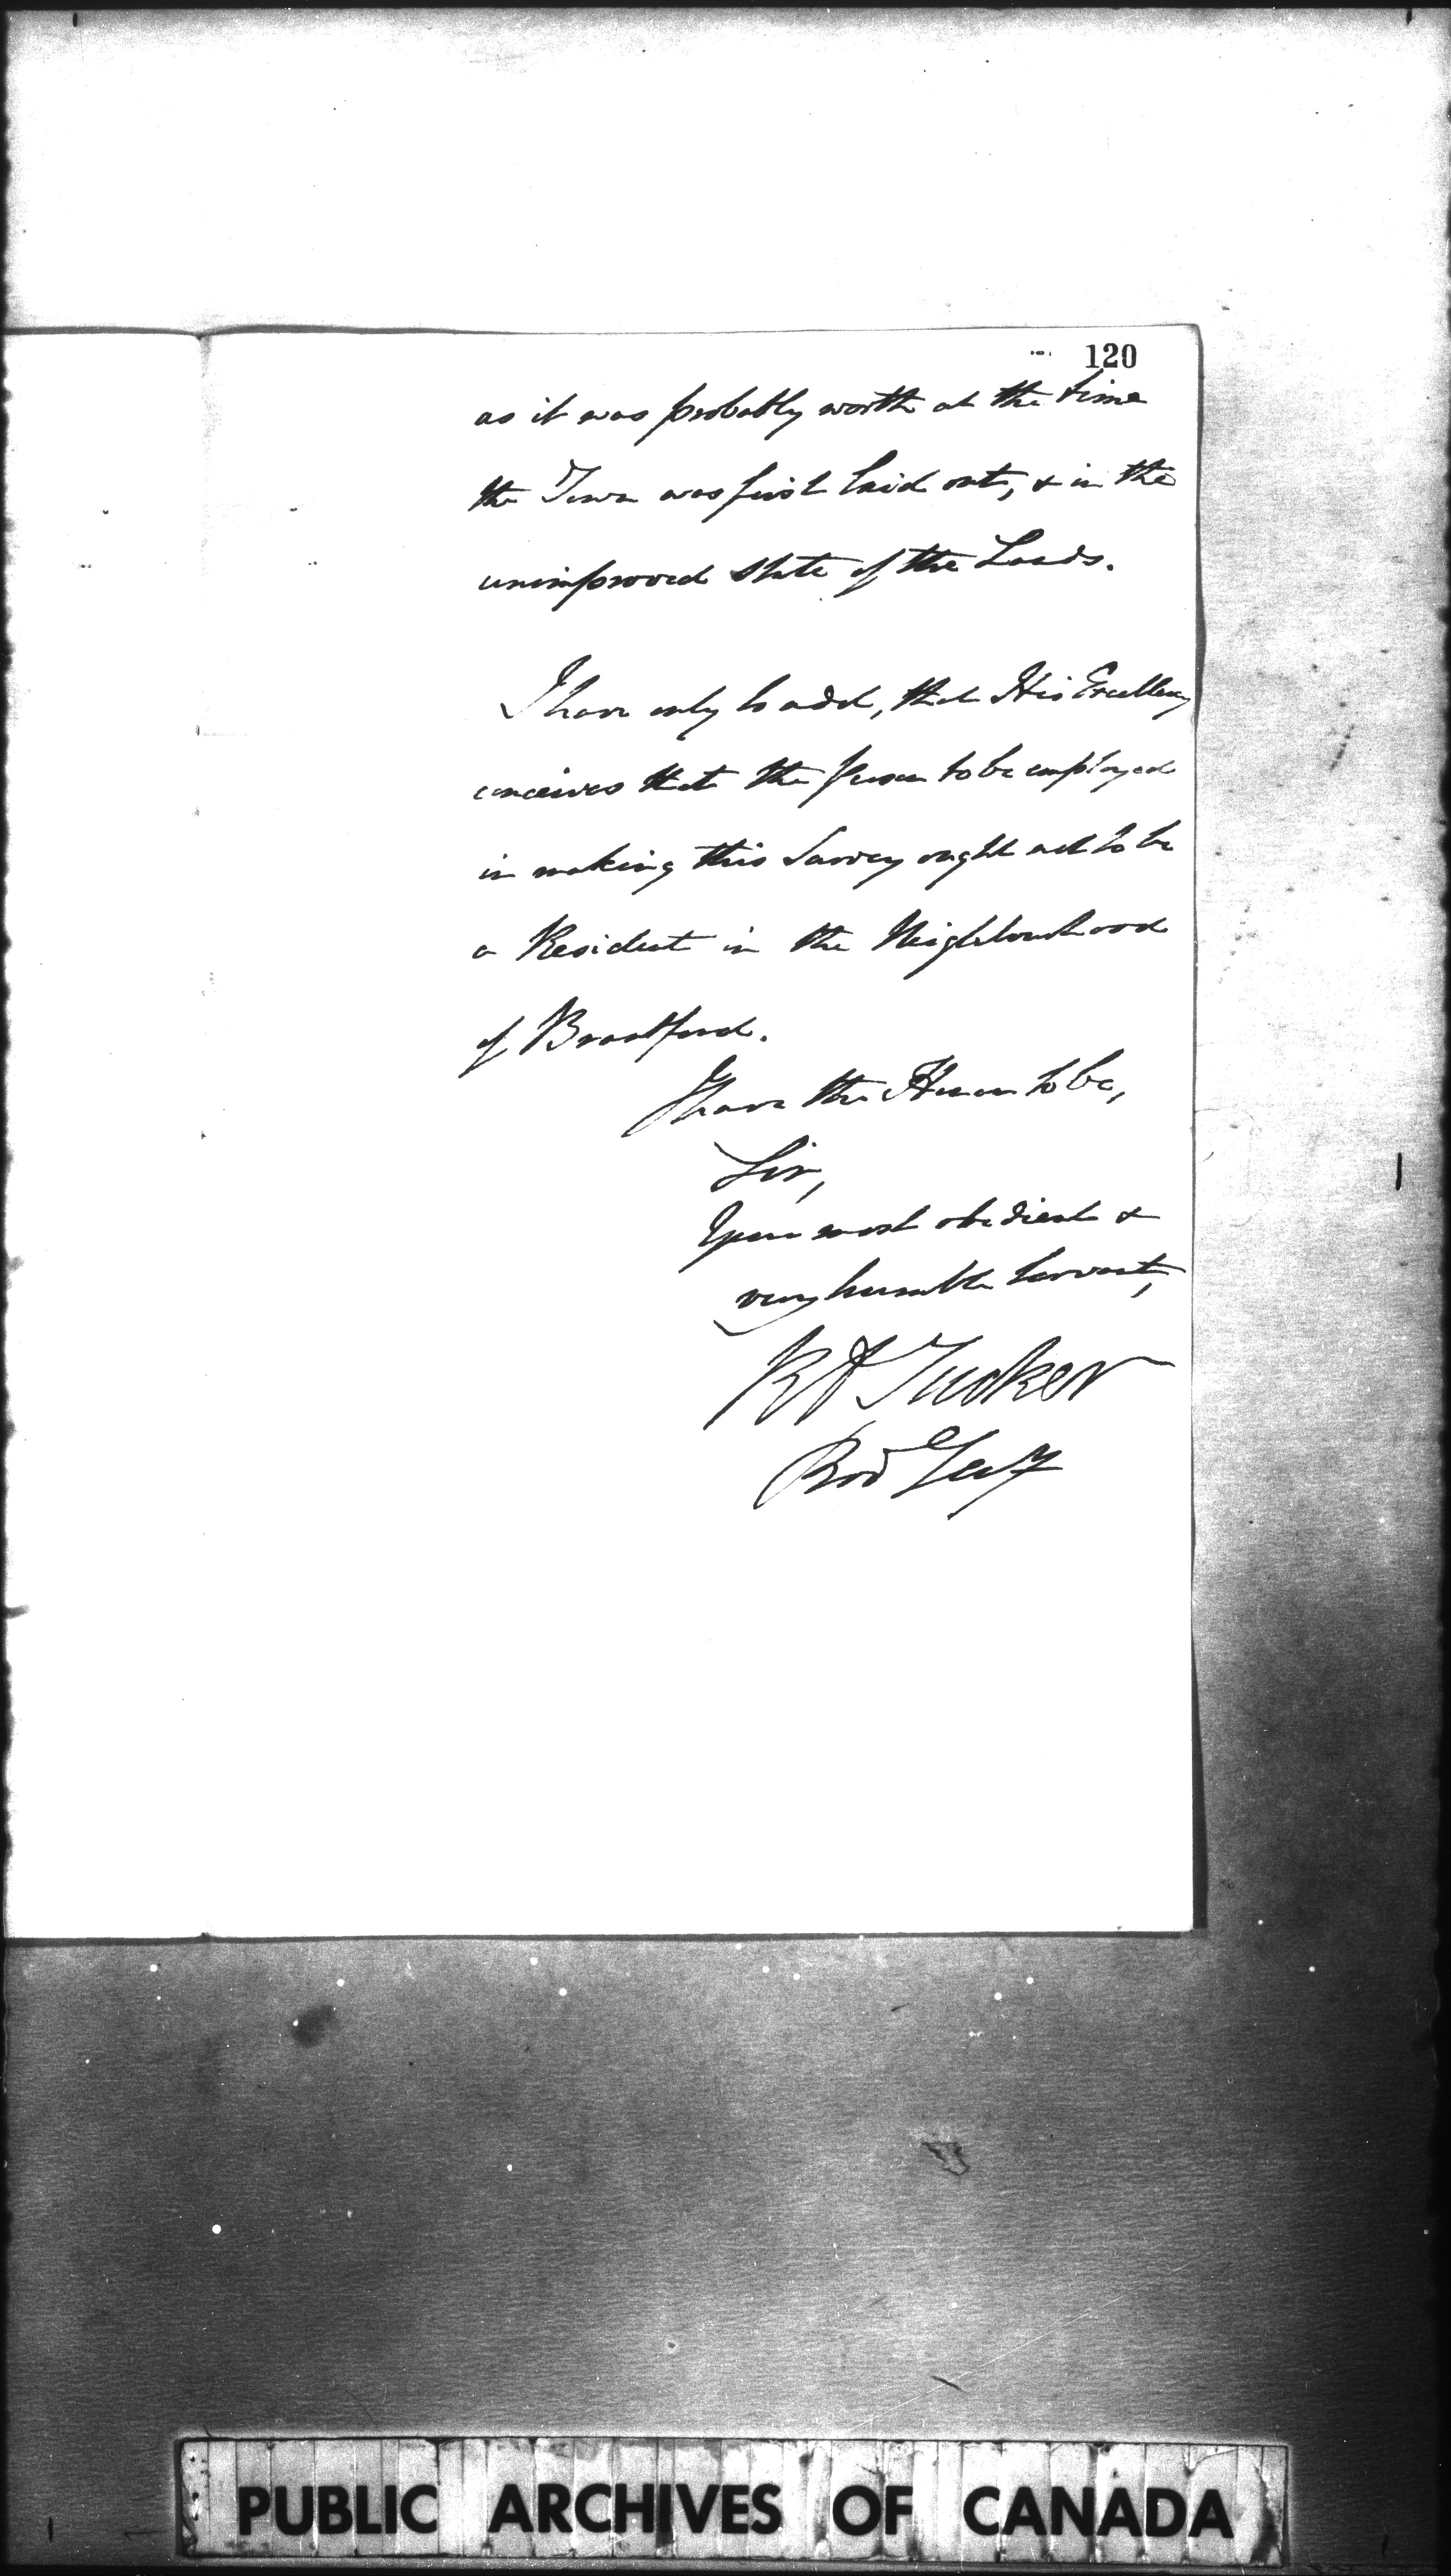 120
as it was probably worth at the time
the Town was first laid out, & in the
unimproved state of the Lands.
I have only to add, that His Excellency
conceives that the person to be employed
in making this Survey ought not to be
a Resident in the Neighbourhood
of Brantford.
I have the Honor to be,
Sir,
Your most obedient &
very humble Servant,
R A Tucker
Prov Secy
PUBLIC ARCHIVES OF CANADA